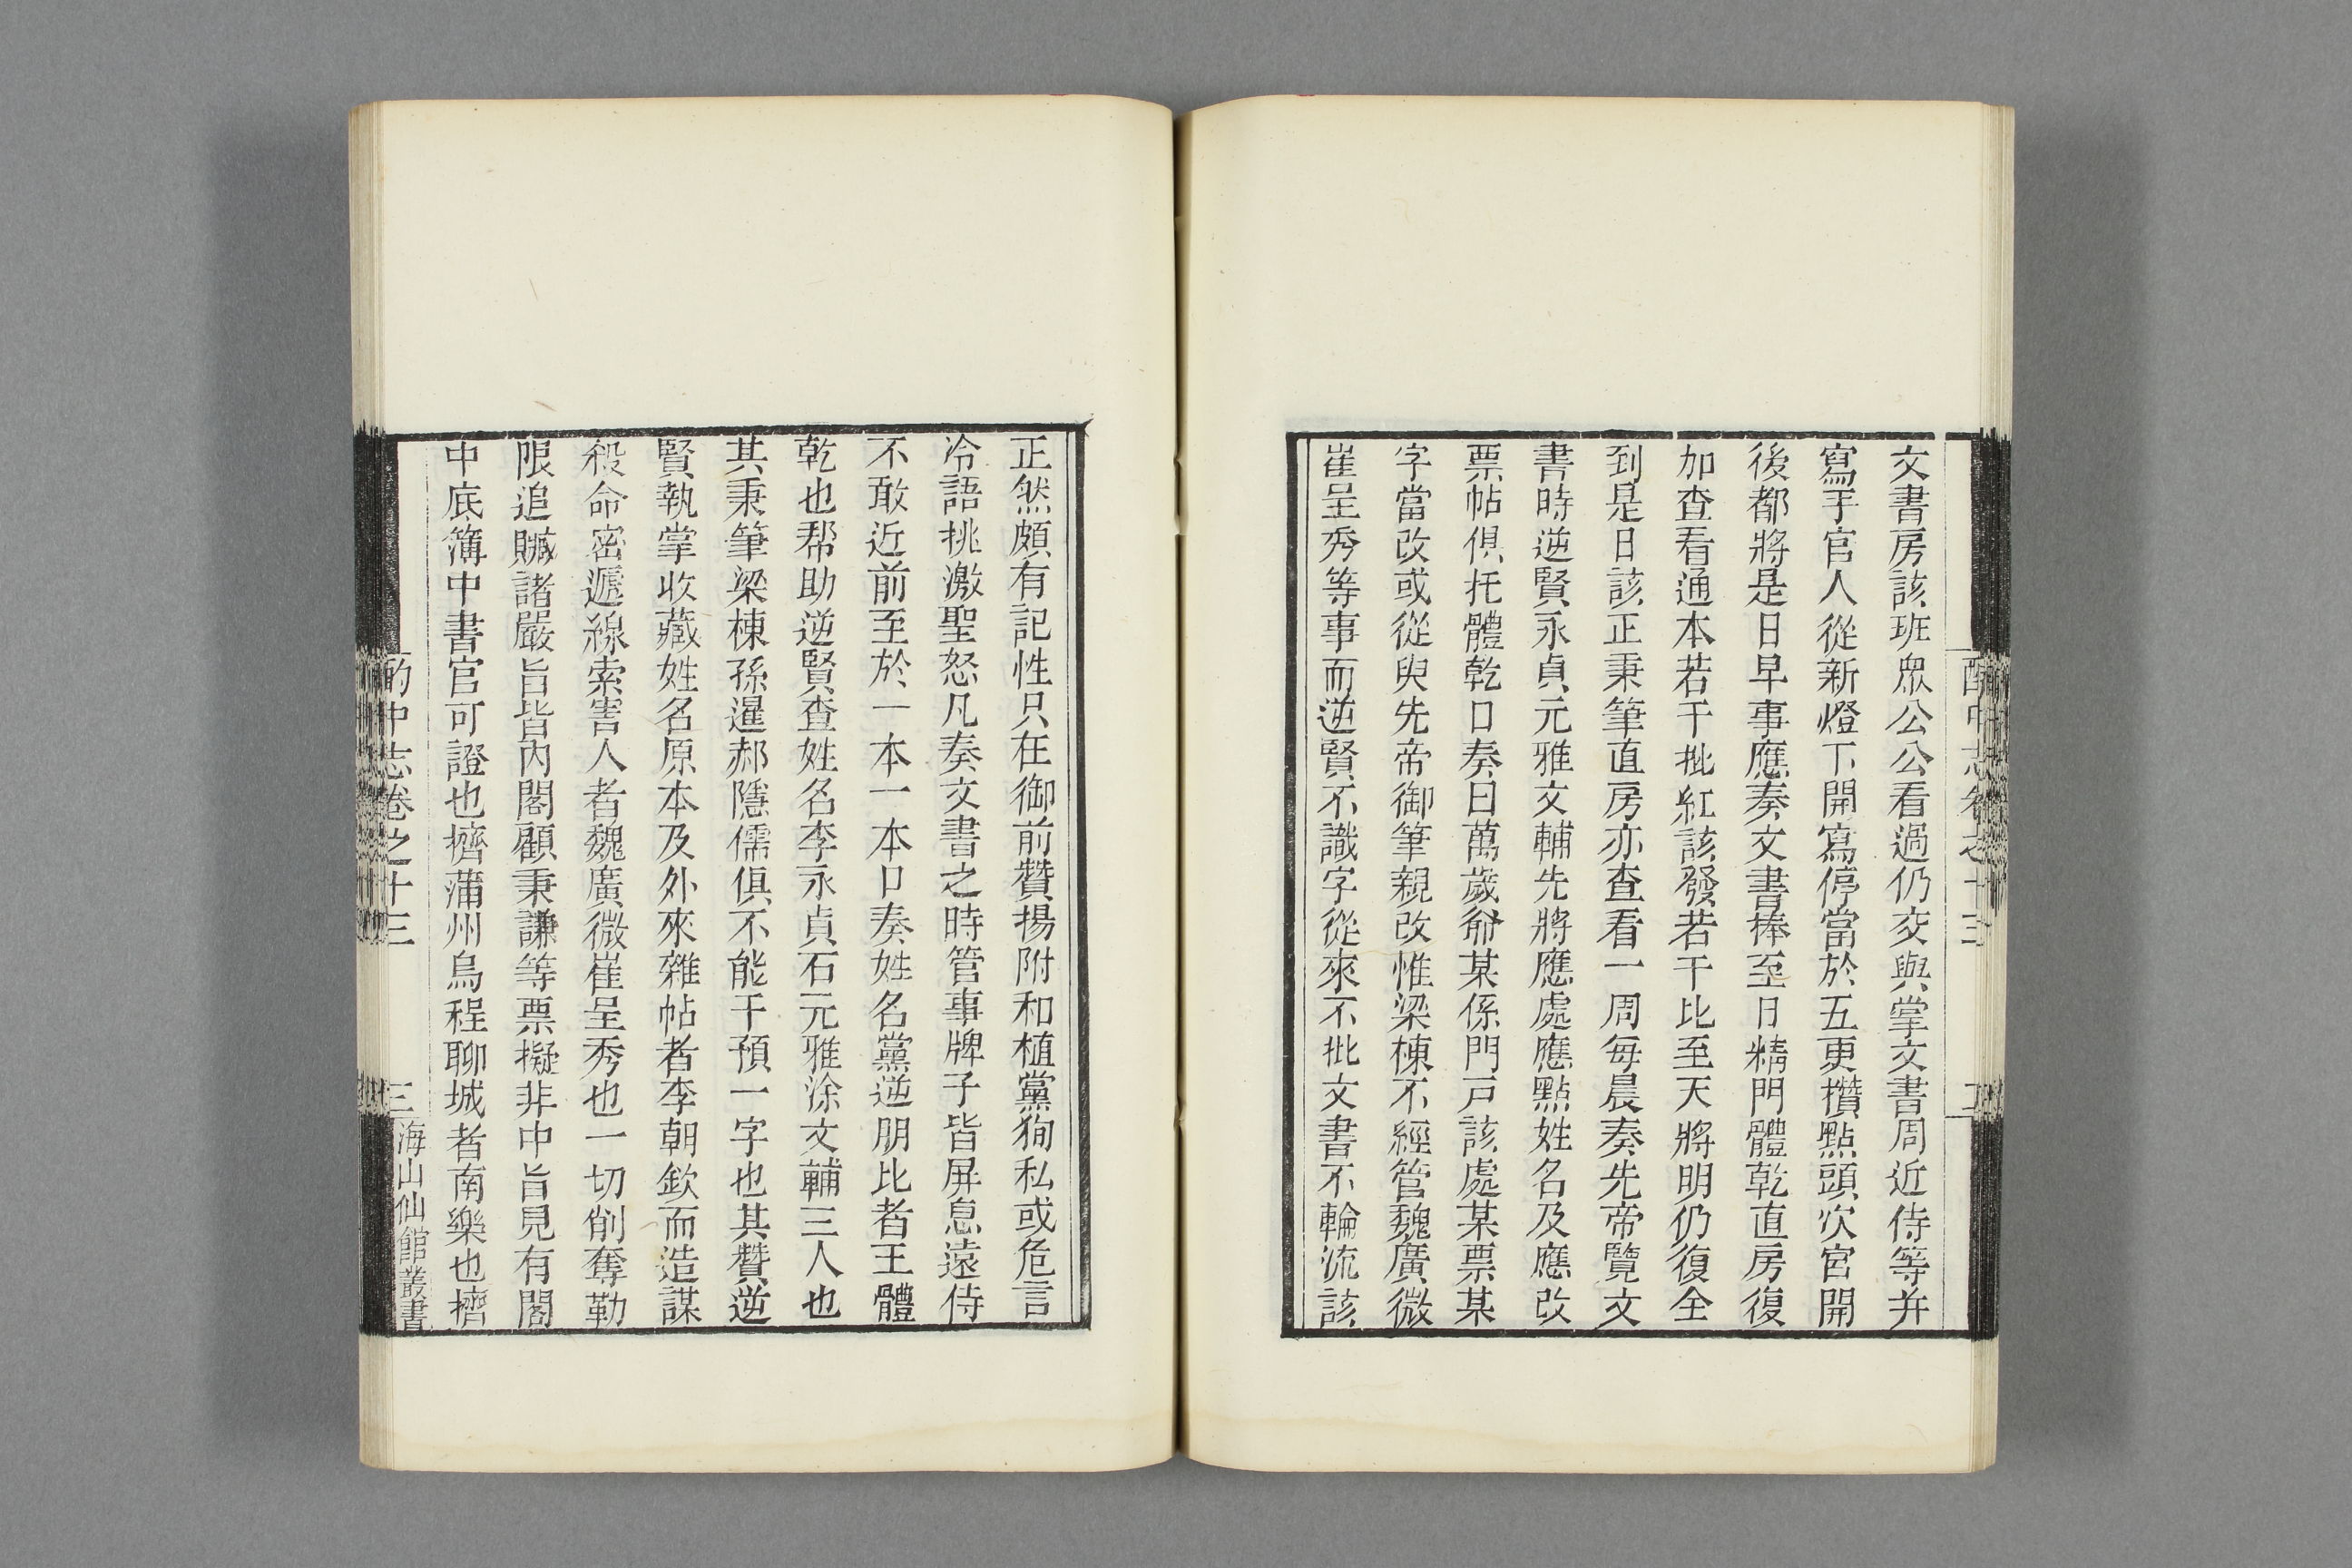 文書房該班眾公公看過仍交與掌文書周近侍等并
寫手官人從新燈下開寫停當於五更攢點頭次宮開
後都將是日早事應奏文書捧至日精門體乾直房復
加查看通本若干批紅該發若干比至天將明仍復全
到是日該正秉筆直房亦查看一周每晨奏先帝覽文
書時逆賢永貞元雅文輔先將應處應點姓名及應改
票帖俱托體乾口奏曰萬歲爺某係門戸該處某票某
字當改或從臾先帝御筆親改惟梁棟不經管魏廣微
崔呈秀等事而逆賢不識字從來不批文書不輪流該
正然頗有記性只在御前贊揚附和植黨狥私或危言
冷語挑激聖怒凡奏文書之時管事牌子皆屏息遠侍
不敢近前至於一本一本口奏姓名黨逆朋比者王體
乾也帮助逆賢查姓名李永貞石元雅涂文輔三人也
其秉筆梁棟孫暹郝隱儒俱不能干預一字也其贊逆
賢執掌收藏姓名原本及外來雜帖者李朝欽而造謀
殺命密遞線索害人者魏廣微崔呈秀也一切削奪勒
限追贓諸嚴旨皆內閣顧秉謙等票擬非中旨見有閣
中底簿中書官可證也擠蒲州烏程聊城者南樂也擠
酌中志卷之十三
三
海山仙館叢書